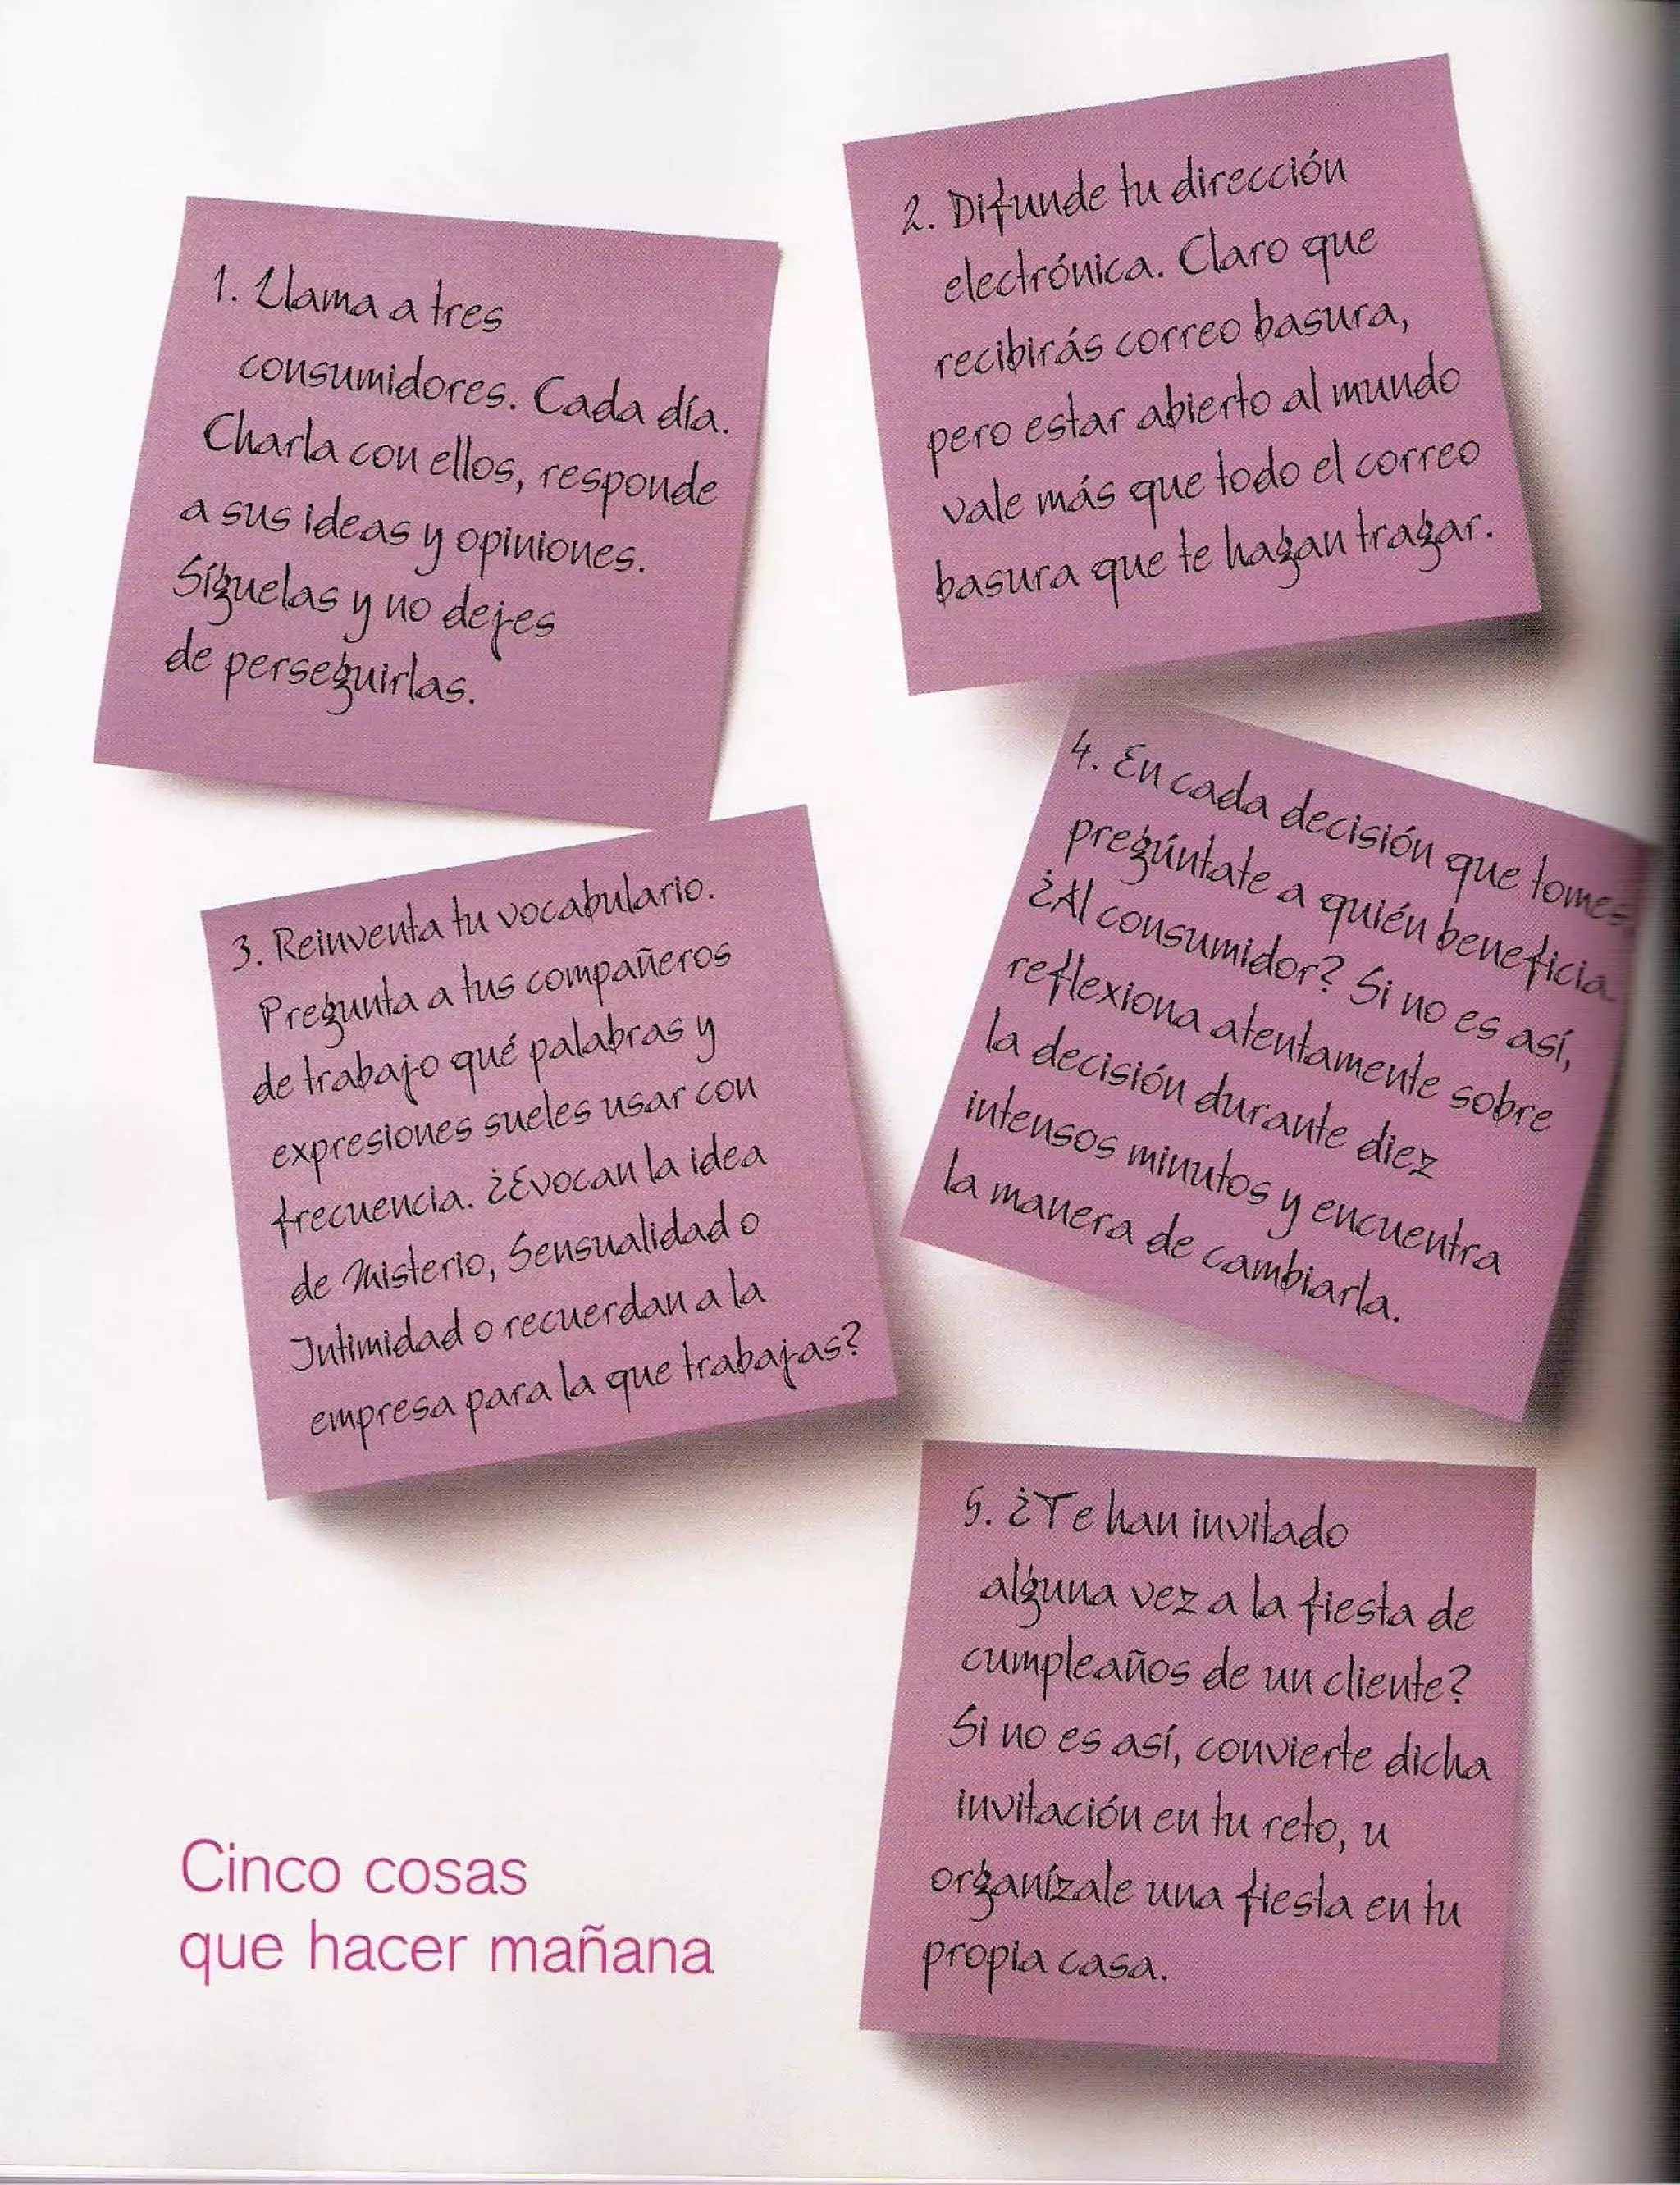 1. Llama a tres
consumidores. Cada día.
Charla con ellos, responde
a sus ideas y opiniones.
Síguelas y no dejes
de perseguirlas.
2. Difunde tu dirección
electrónica. Claro que
recibirás correo basura,
pero estar abierto al mundo
vale más que todo el correo
basura que te hagan tragar.
3. Reinventa tu vocabulario.
Pregunta a tus compañeros
de trabajo qué palabras y
expresiones sueles usar con
frecuencia. ¿Evocan la idea
de Misterio, Sensualidad o
Intimidad o recuerdan a la
empresa para la que trabajas?
4. En cada decisión que tomes,
pregúntate a quién beneficia.
¿Al consumidor? Si no es así,
reflexiona atentamente sobre
la decisión durante diez
intensos minutos y encuentra
la manera de cambiarla.
5. ¿Te han invitado
alguna vez a la fiesta de
cumpleaños de un cliente?
Si no es así, convierte dicha
invitación en tu reto, u
organízale una fiesta en tu
propia casa.
Cinco cosas
que hacer mañana